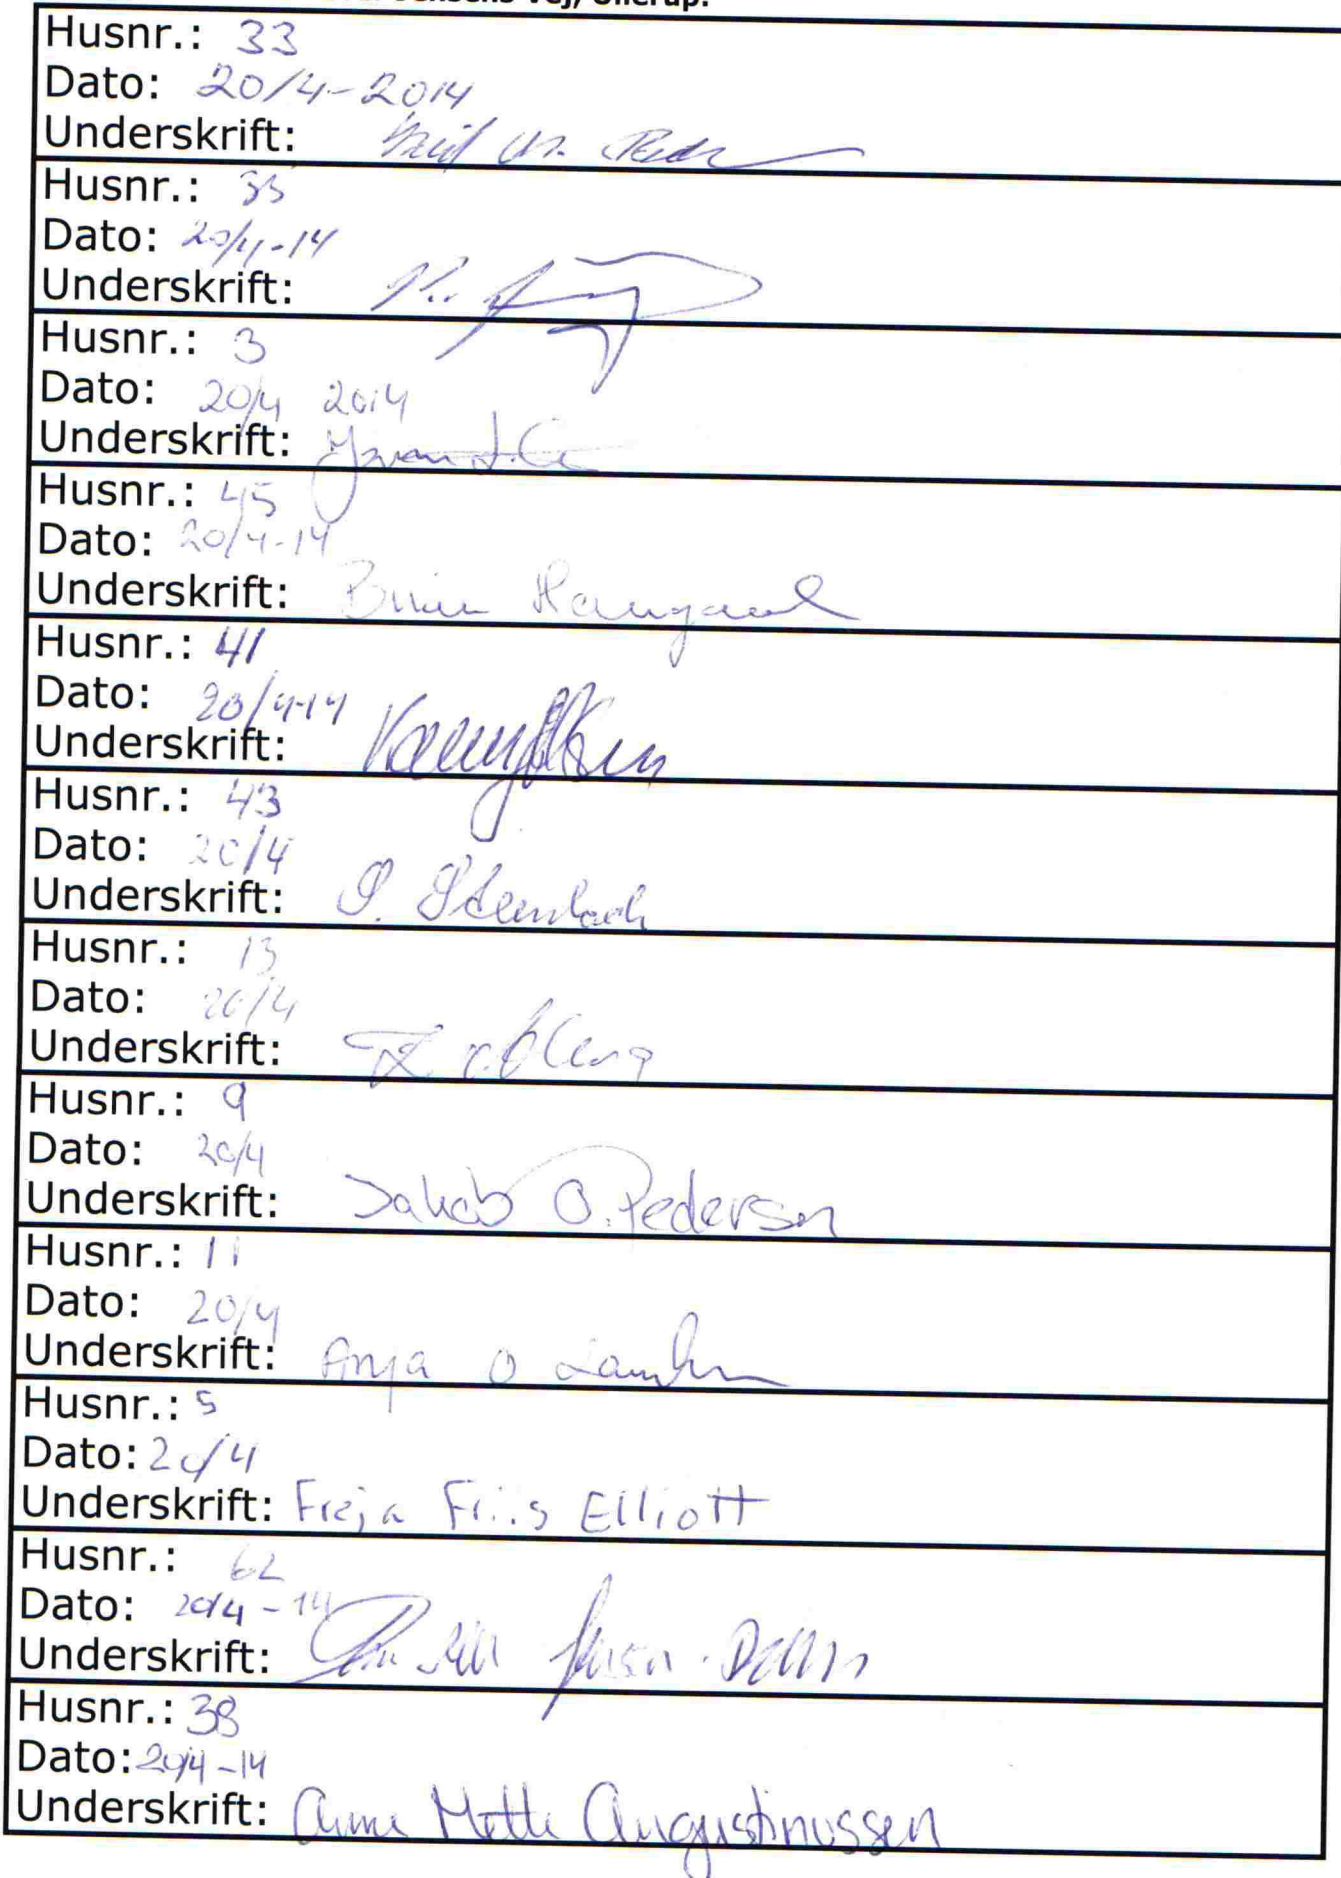 Jensens Vej, Ollerup.
Husnr.: 33
Dato: 20/4-2014
Underskrift:
Husnr.: 35
Dato: 20/4-14
Underskrift:
Husnr.: 3
Dato: 20/4 2014
Underskrift:
Husnr.: 45
Dato: 20/4-14
Underskrift:
Husnr.: 41
Dato: 20/4-14
Underskrift:
Husnr.: 43
Dato: 20/4
Underskrift: S.
Husnr.: 13
Dato: 20/4
Underskrift:
Husnr.: 9
Dato: 20/4
Underskrift: Jakob O. Pedersen
Husnr.: 11
Dato: 20/4
Underskrift: Anja O
Husnr.: 5
Dato: 20/4
Underskrift: Freja Friis Elliott
Husnr.: 62
Dato: 20/4-14
Underskrift:
Husnr.: 38
Dato: 20/4-14
Underskrift: Anne Mette Augustinussen